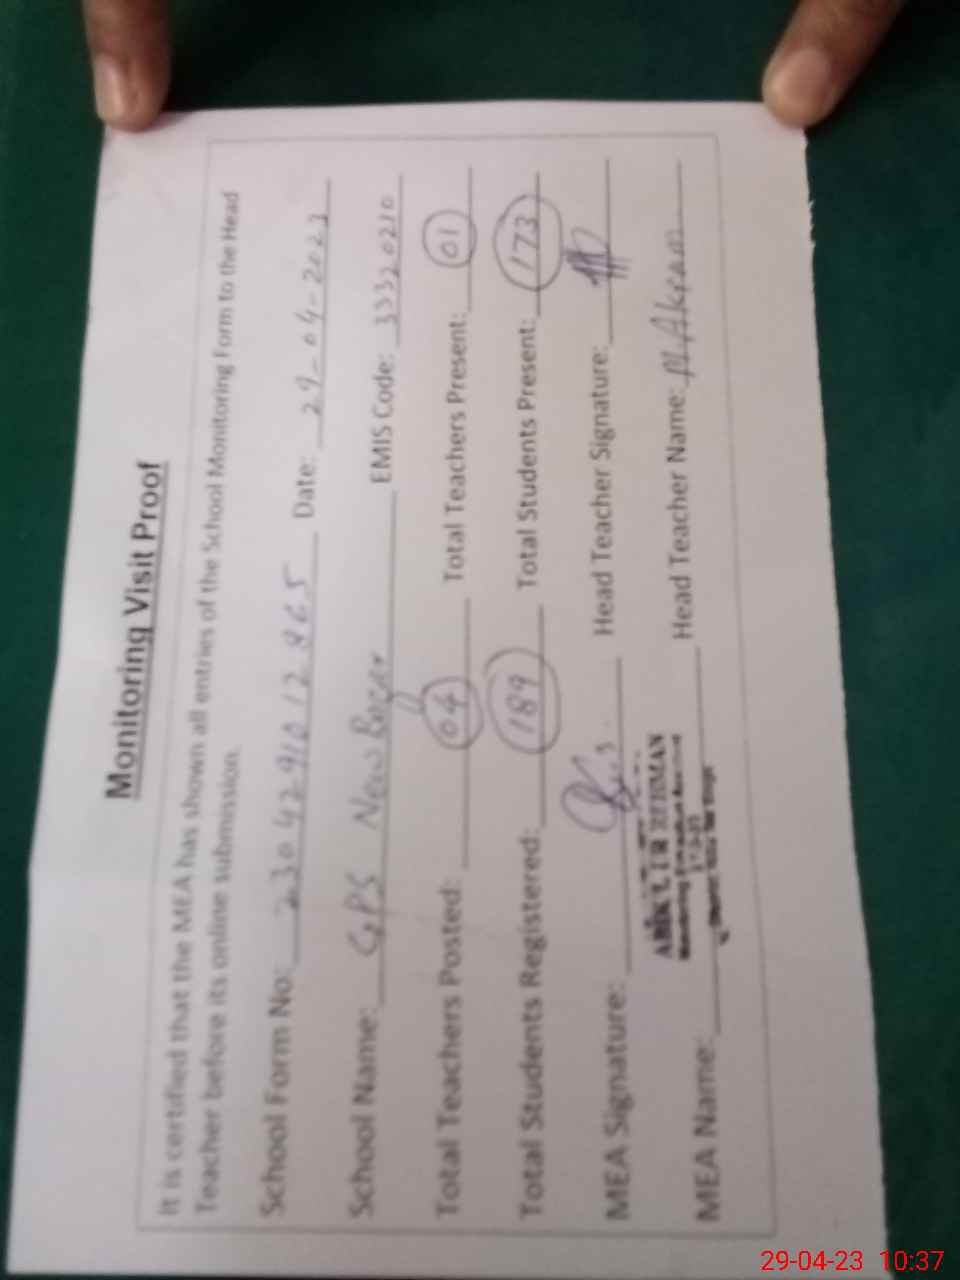 Monitoring Visit Proof
It is certified that the MEA has shown all entries of the School Monitoring Form to the Head
Teacher before its online submission.
School Form No: Date: 29-04-2023
School Name: GPS New EMIS Code: 33320210
Total Teachers Posted: 04 Total Teachers Present: 01
Total Students Registered: 189 Total Students Present: 173
MEA Signature: Head Teacher Signature:
REHMAN
MEA Name: Head Teacher Name: M.Akram
29-04-23 10:37